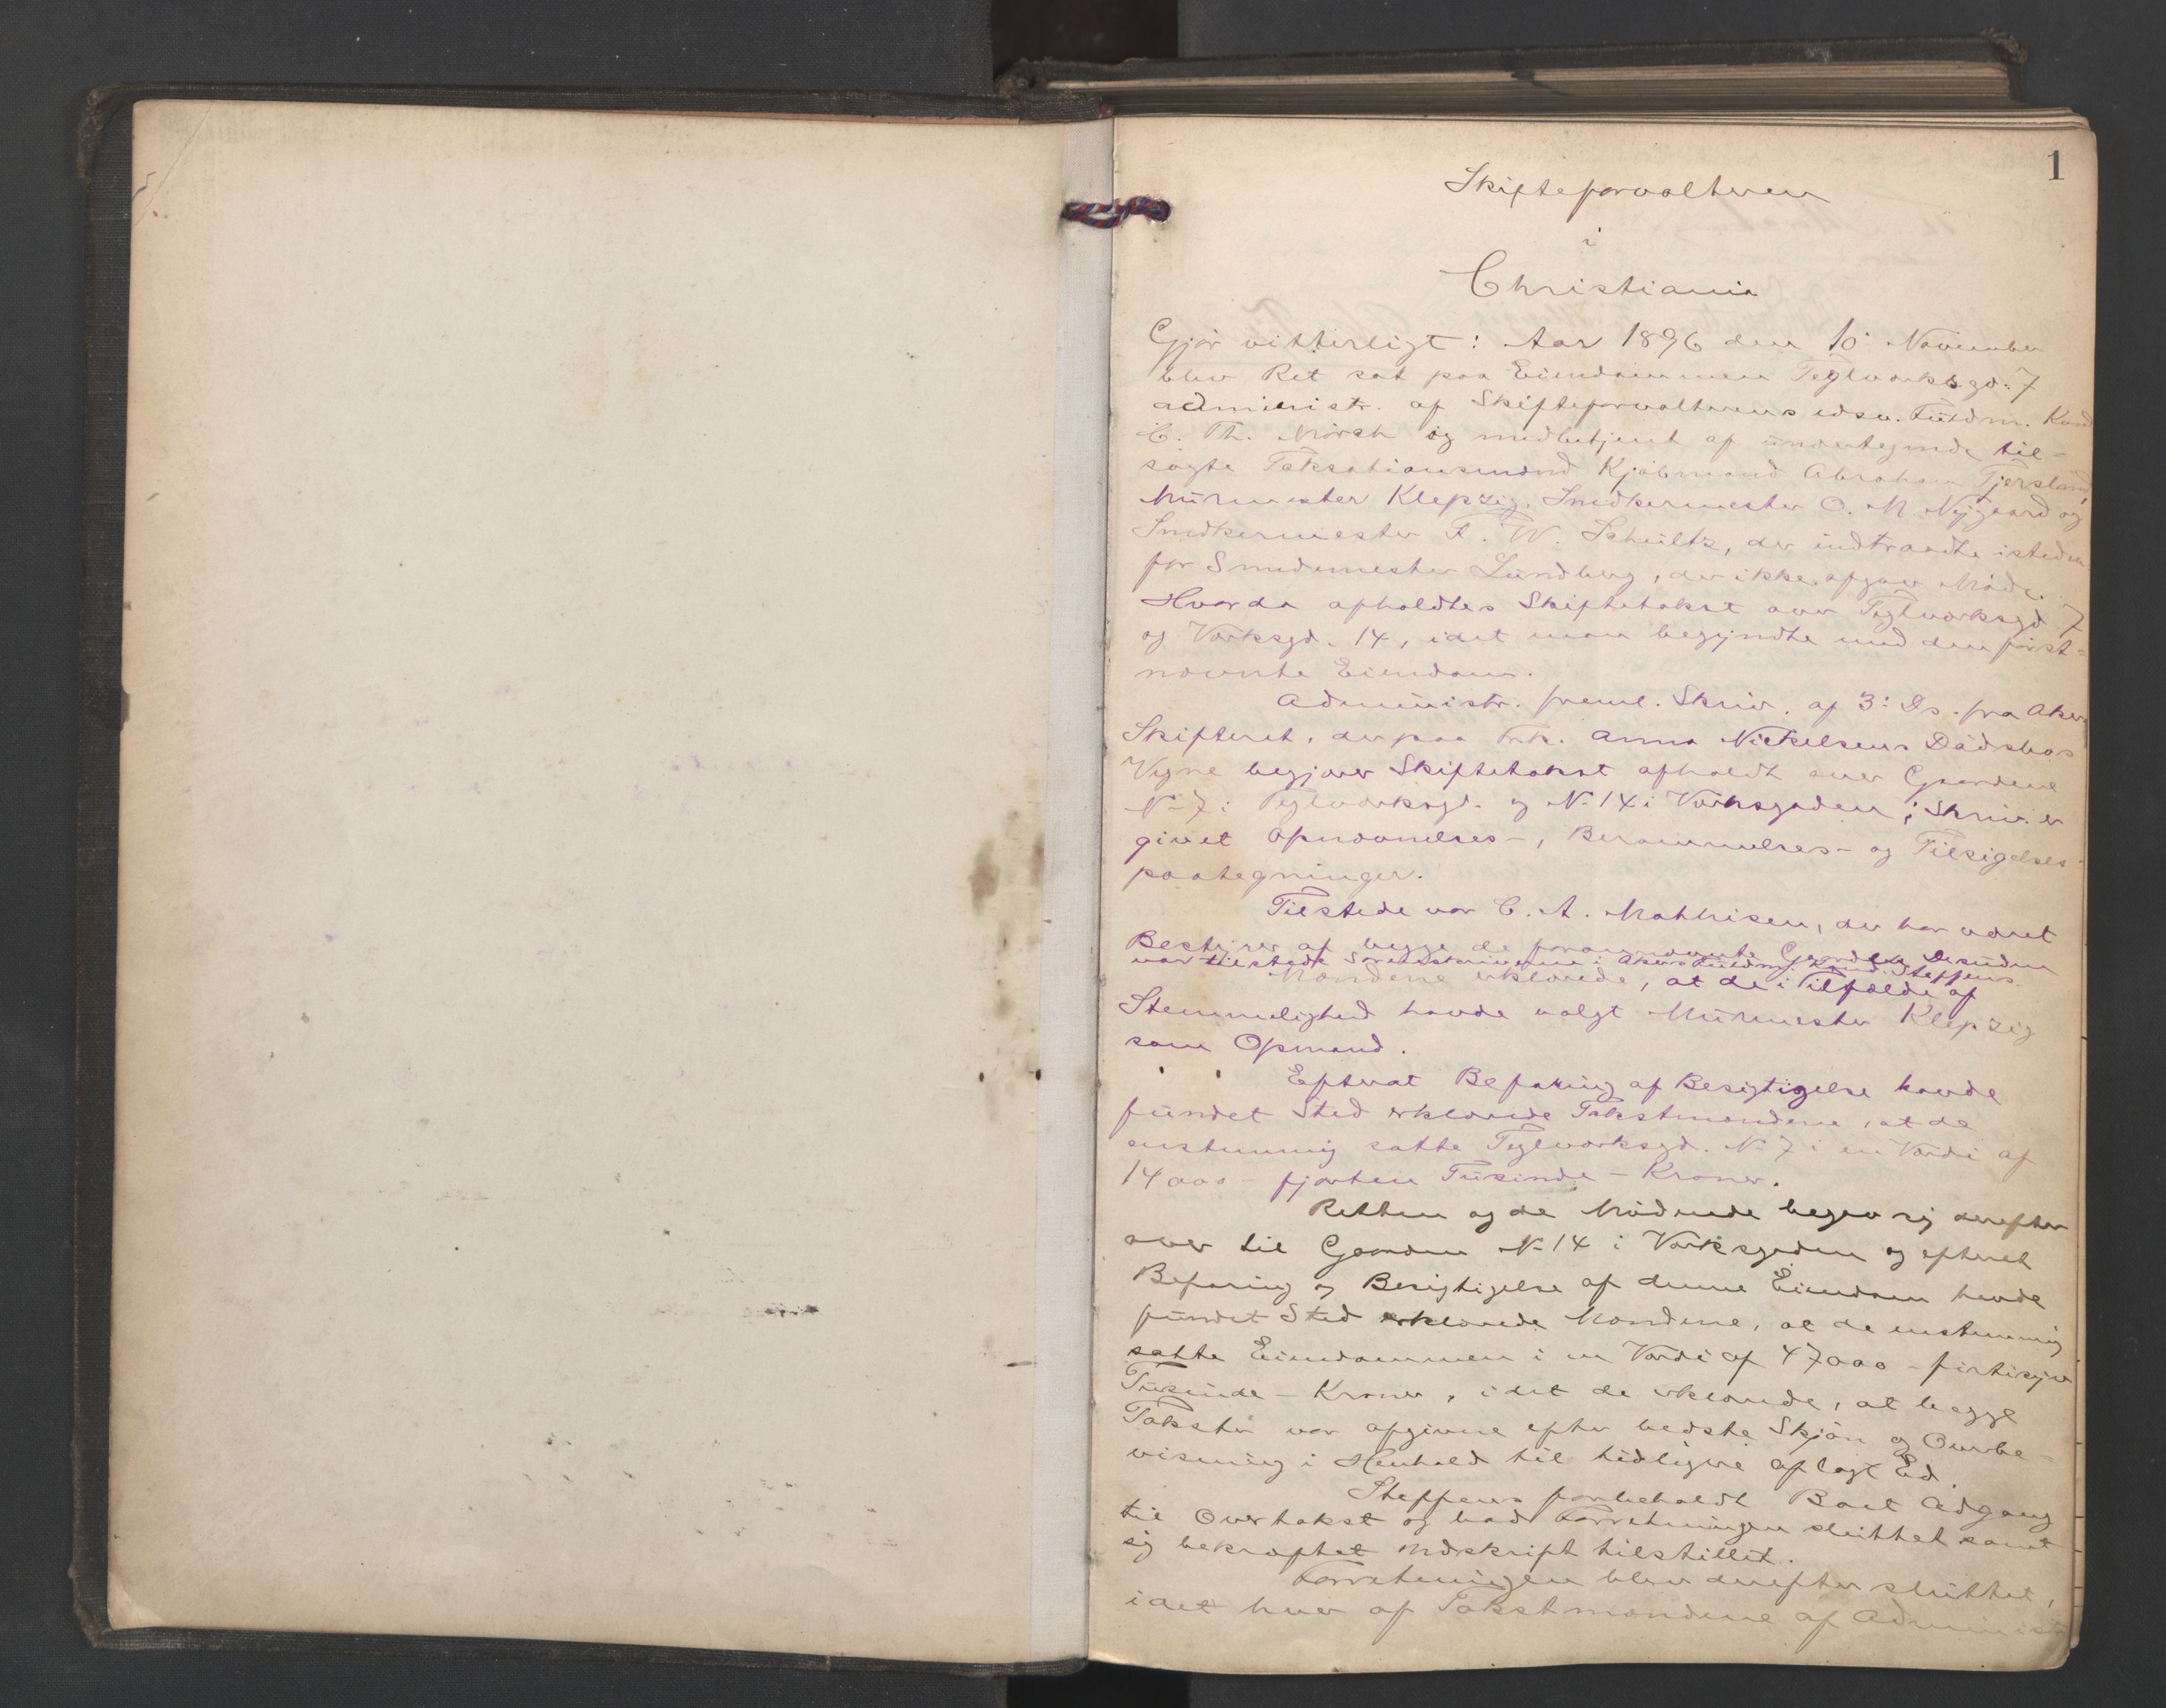 1
Skifteforvalteren
i
Christiania
Gjør vitterligt: Aar 1896 den 10 November
blev Ret sat paa Eiendommen Teglverksgd. 7
administr. af Skifteforvalterens edsv. Fuldm. Kand
C. Th. Mörch og medbetjent af undertegnede til-
sagte Taksationsmænd Kjøbmand Abraham Tjersland,
Murmester Klepzig, Snedkermester O. M. Nygaard og
Snedkermester F. W. Schultz, der indtraadte isteden
for Smedemester Lundberg, der ikke afgav Møde.
Hvorda afholdtes Skiftetakst over Teglverksgd 7
og Verksgd. 14, idet man begyndte med den først-
nævnte Eiendom.
Administr. freml. Skriv. af 3: Ds. fra Akers
Skifteret, der paa Frk. Anna Nickelsens Dødsbos
Vegne begjærer Skiftetakst afholdt over Gaardene
N. 7 i Teglverksgd. og N. 14 i Verksgaden; Skriv. er
givet Opnævnelses-, Berammelses- og Tilsigelses-
paategninger.
Tilstede var C. A. Mathisen, der har været
Bestyrer af begge de forannævnte Gaarde. Desuden
var tilstede Sorenskriveren i Akers Fuldm. Kand. Steffens.
Mændene erklærede, at de i Tilfælde af
Stemmelighed havde valgt Murmester Klepzig
som Opmand.
Efterat Befaring af Besigtigelse havde
fundet Sted erklærede Takstmændene, at de
enstemmig satte Teglverksgd. N. 7 i en Værdi af
14000 - fjorten Tusinde - Kroner.
Retten og de Mødende begav sig derefter
over til Gaarden N. 14 i Verksgaden og efterat
Befaring og Besigtigelse af denne Eiendom havde
fundet Sted erklærede Mændene, at de enstemmig
satte Eiendommen i en Værdi af 47000 - førtisyv
Tusinde - Kroner, idet de erklærede, at begge
Takster var afgivne efter bedste Skjøn og Overbe-
visning i Henhold til tidligere aflagt Ed.
Steffens forbeholdt Boet Adgang
til Overtakst og bad Forretningen sluttet samt
sig bekræftet Udskrift tilstillet.
Forretningen blev derefter sluttet,
idet hver af Takstmændene af Administr